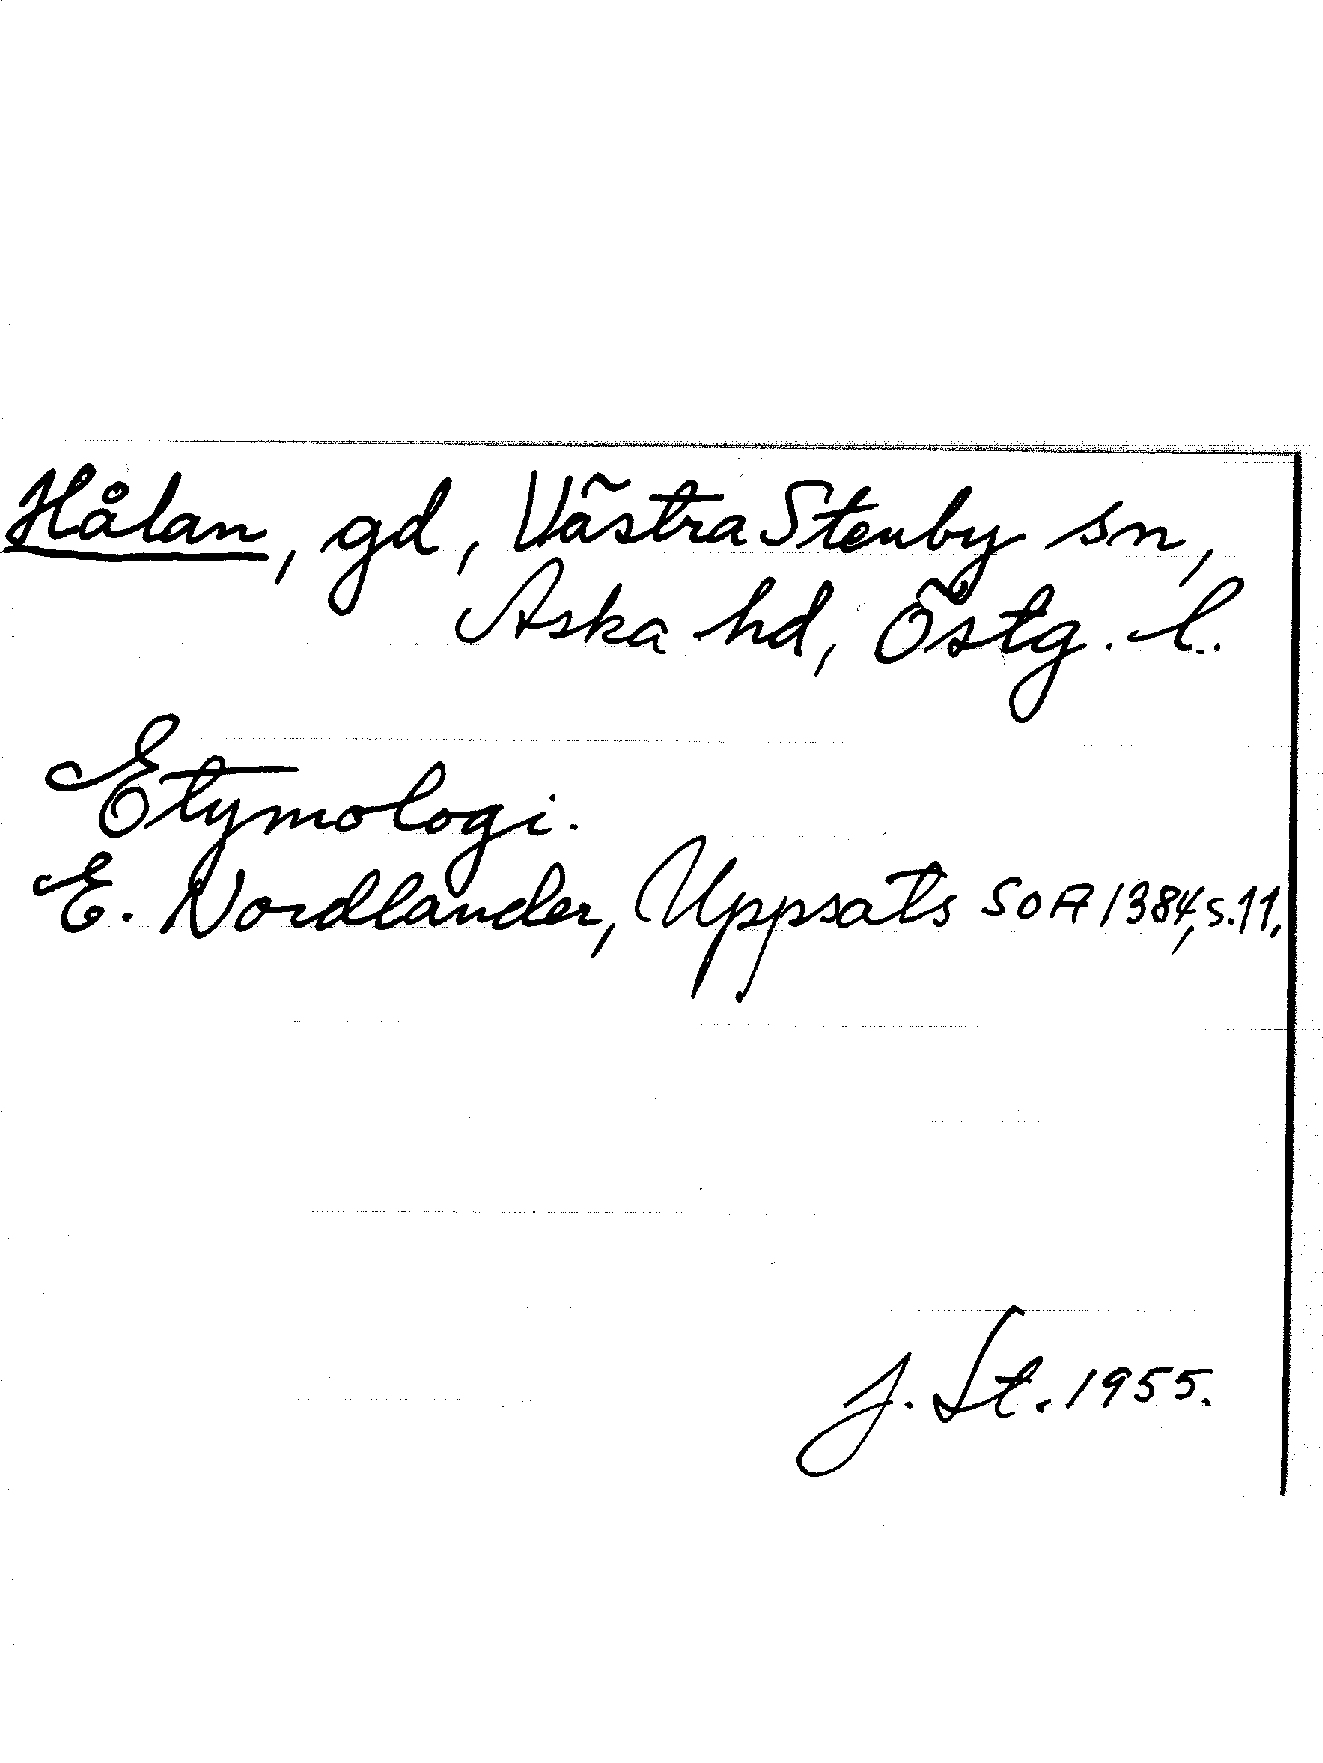 Hålan, gd, Västra Stenby sn,
Aska hd, Östg. l.
Etymologi.
E. Nordlander, Uppsats SOA 1384, s. 11.
J. St. 1955.